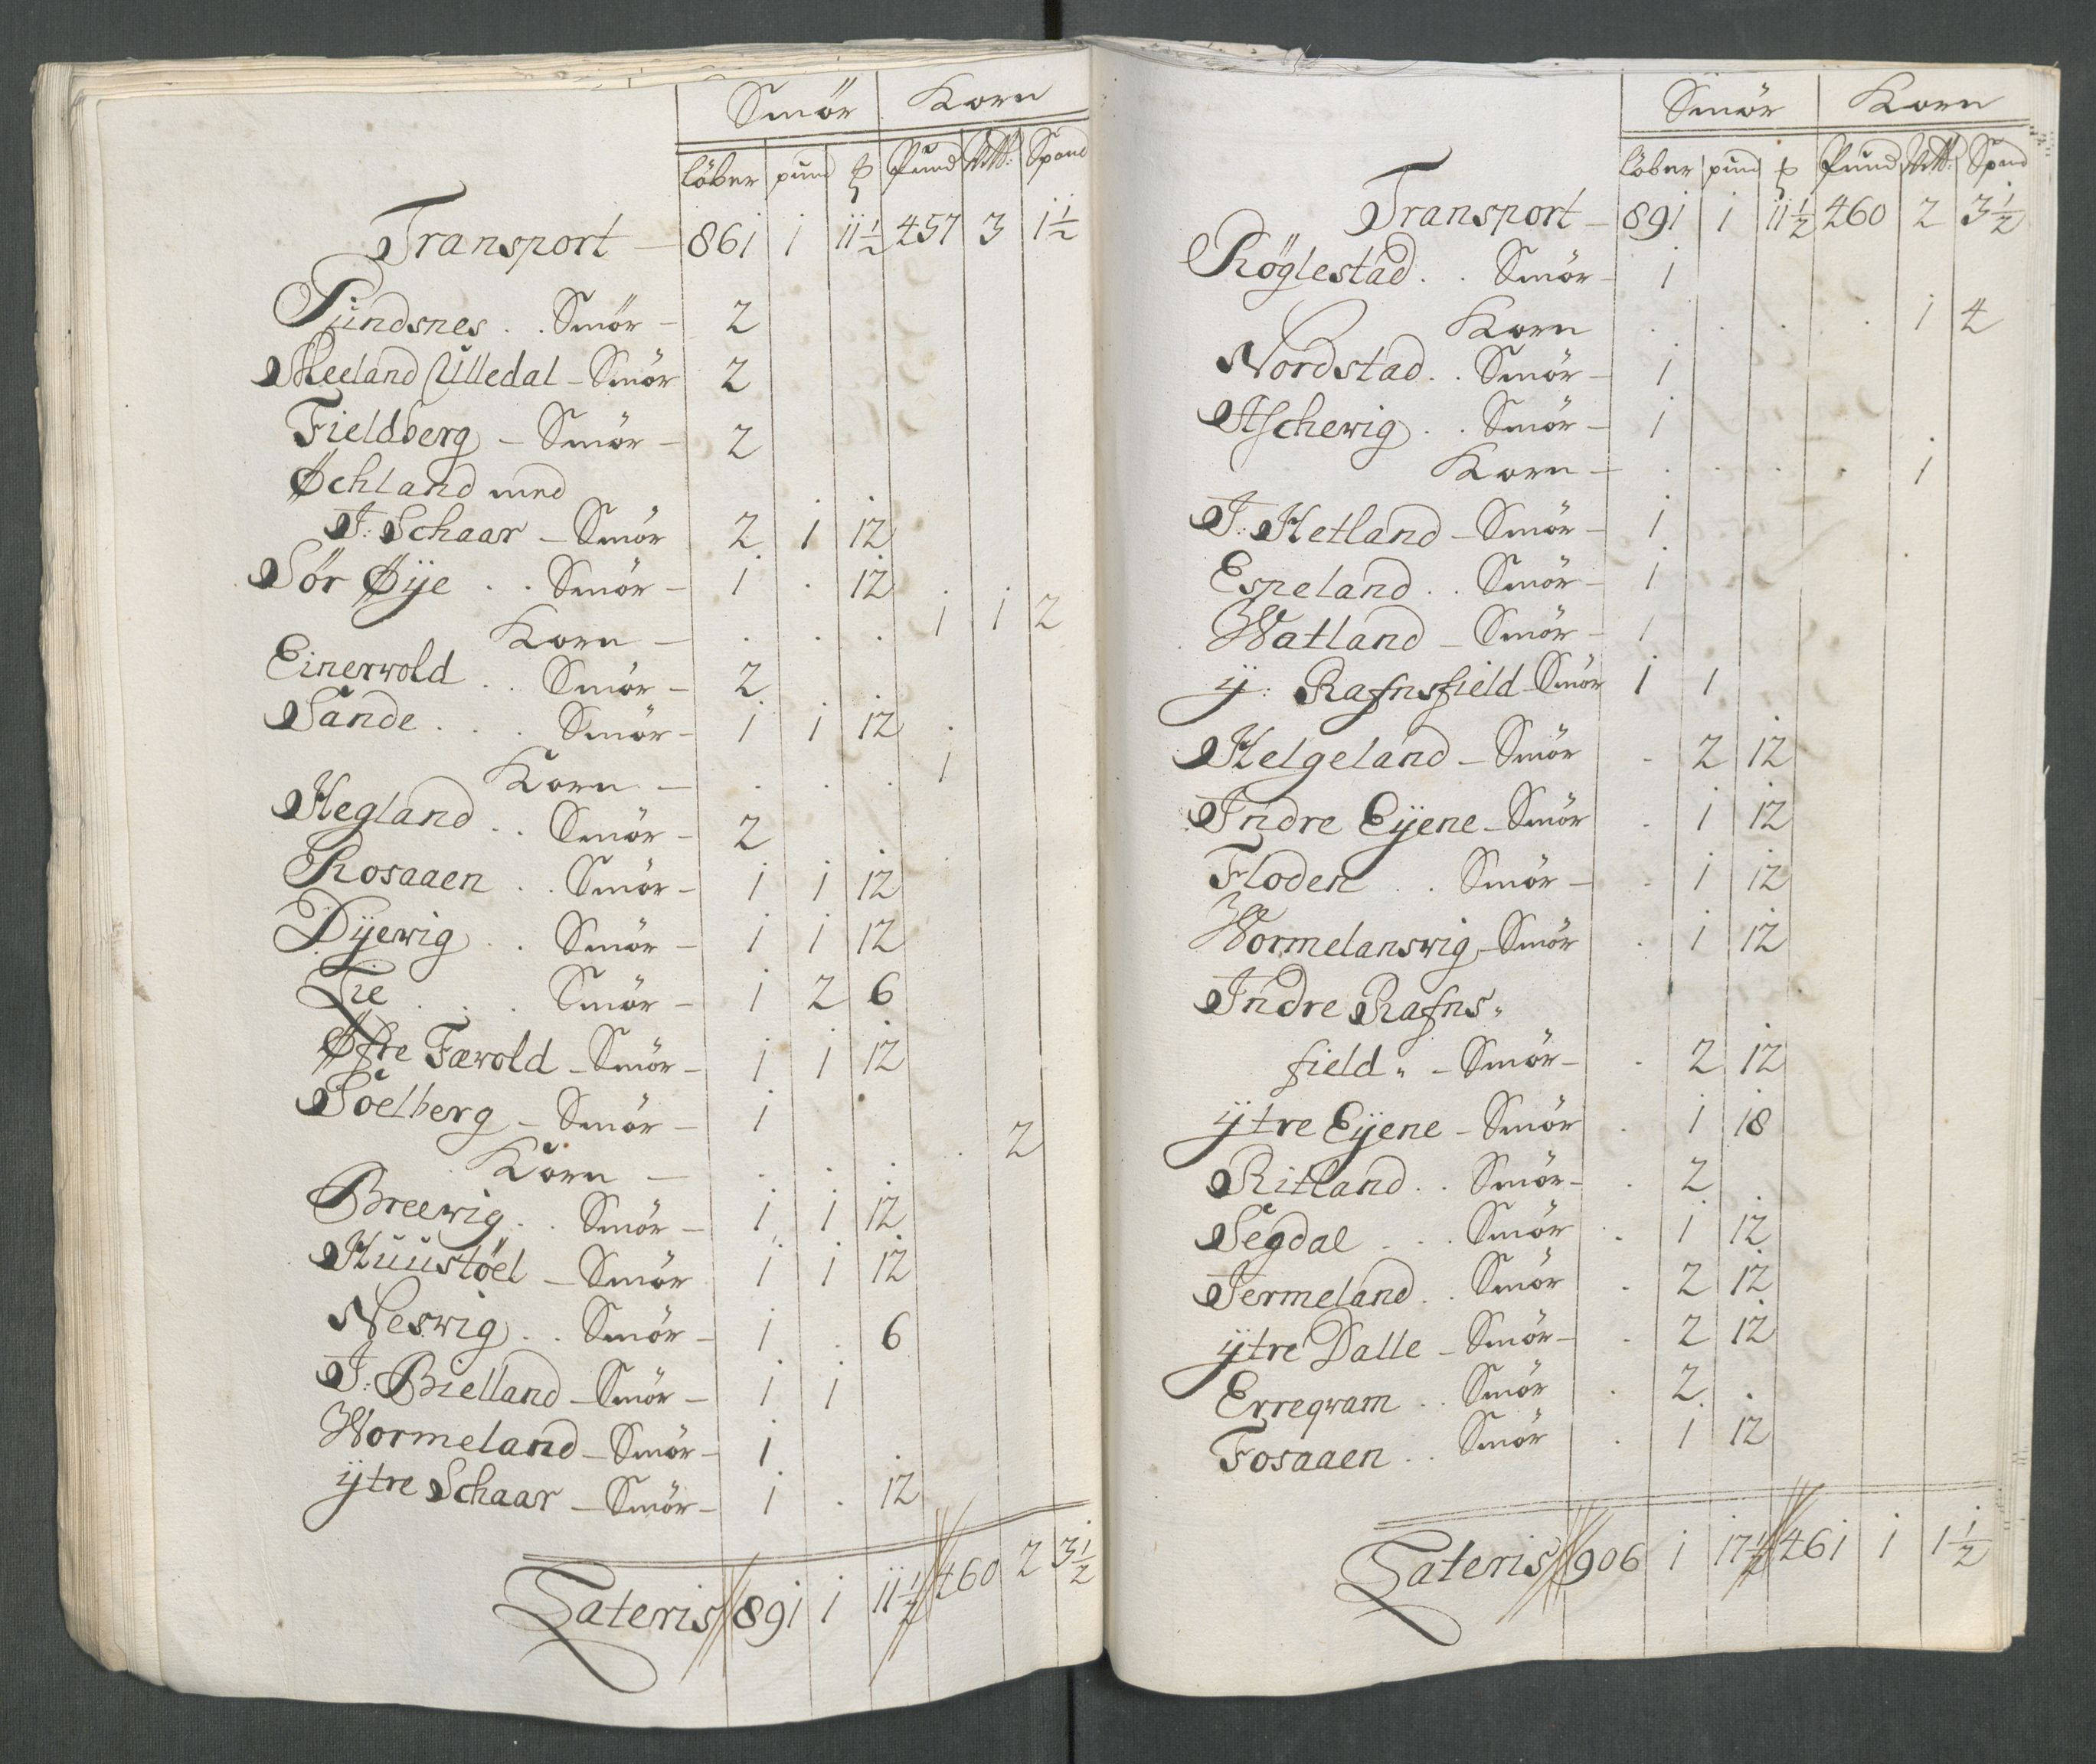 Smör Korn
löber pund ℔ Pund Spand
Transport — 861 1 11½ 457 3 1½
Pundsnes . . Smör — 2
Meeland Ulledal — Smör 2
Fieldberg — Smör — 2
Øchland med
J: Schaar — Smör 2 1 12
Sör Øÿe . . Smör — 1 . 12
Korn — . . . 1 1 2
Einerwold . . Smör — 2
Sande . . . Smör — 1 1 12
Korn — . . . 1
Hegland . . Smör — 2
Rosaaen . . Smör — 1 1 12
Dÿewig . . Smör — 1 1 12
Lie . . . Smör — 1 2 6
Øfre Færold — Smör — 1 1 12
Soelberg — Smör — 1
Korn — . . . . 2
Breewig . . Smör — 1 1 12
Huustöel — Smör 1 1 12
Neswig . . Smör — 1 . 6
J: Bielland — Smör — 1 1
Wormeland — Smör — 1
ÿtre Schaar — Smör — 1 . 12
Lateris 891 1 11½ 460 2 3½
Smör Korn
löber pund ℔ Pund Spand
Transport — 891 1 11½ 460 2 3½
Röglestad . . Smör — 1
Korn . . . . 1 4
Nordstad . . Smör — 1
Aschewig . . Smör — 1
Korn — . . . . 1
J: Hetland — Smör — 1
Espeland . . Smör — 1
Watland — Smör — 1
ÿ: Rafnsfield — Smör 1 1
Helgeland — Smör . 2 12
Indre Eÿene — Smör . 1 12
Floden . . Smör — . 1 12
Wormelanswig — Smör . 1 12
Indre Rafns„
field „ — Smör — . 2 12
ÿtre Eÿene — Smör . 1 18
Ritland . . Smör — . 2
Segdal . . . Smör . 1 12
Jermeland . . Smör . 2 12
ÿtre Dalle — Smör — . 2 12
Erreqvam . . Smör . 2 .
Fosaaen . . Smör . 1 12
Lateris 906 1 17½ 461 1 1½